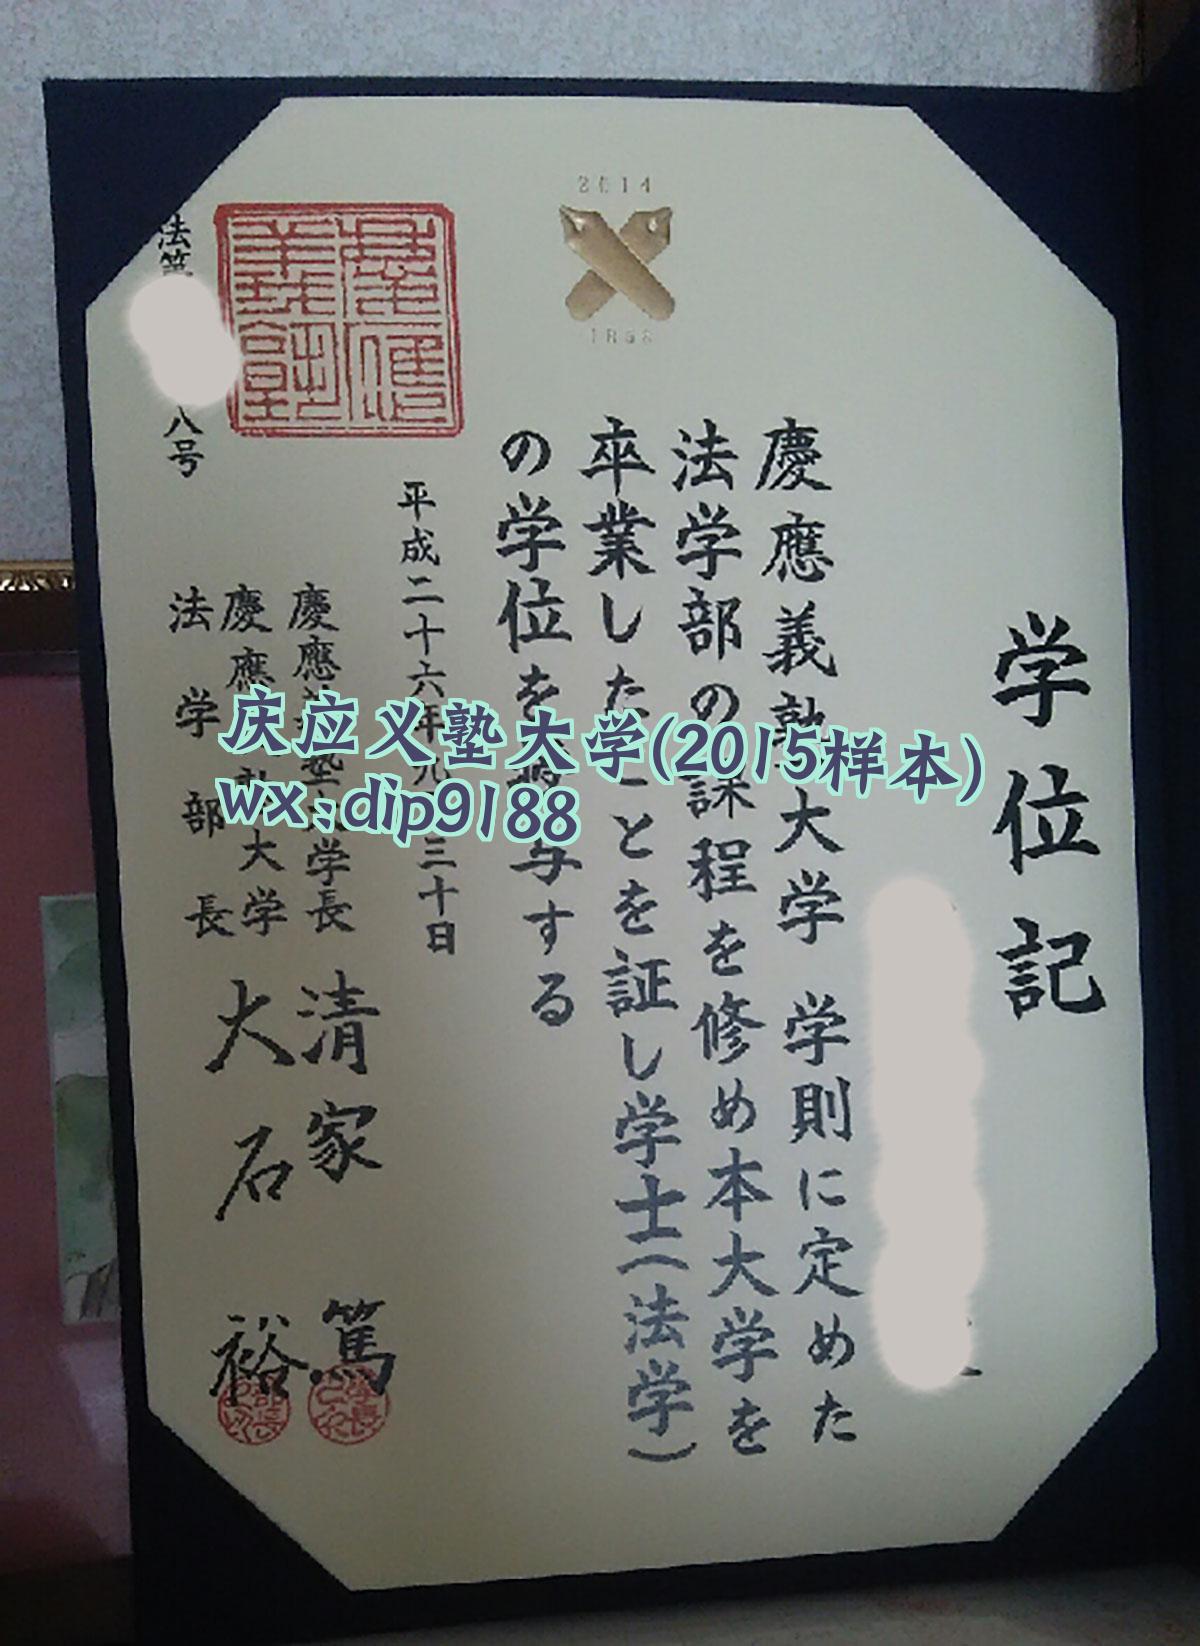 学位記
慶應義塾大学学則に定めた
法学部の課程を修め本大学を
卒業したことを証し学士(法学)
の学位を与する
平成二十六年九三十日
慶應塾大学長 清家 篤
慶應大学
法学部長 大石 裕
法第
八号
2014
1858
慶應義塾
庆应义塾大学(2015样本)
wx:dip9188